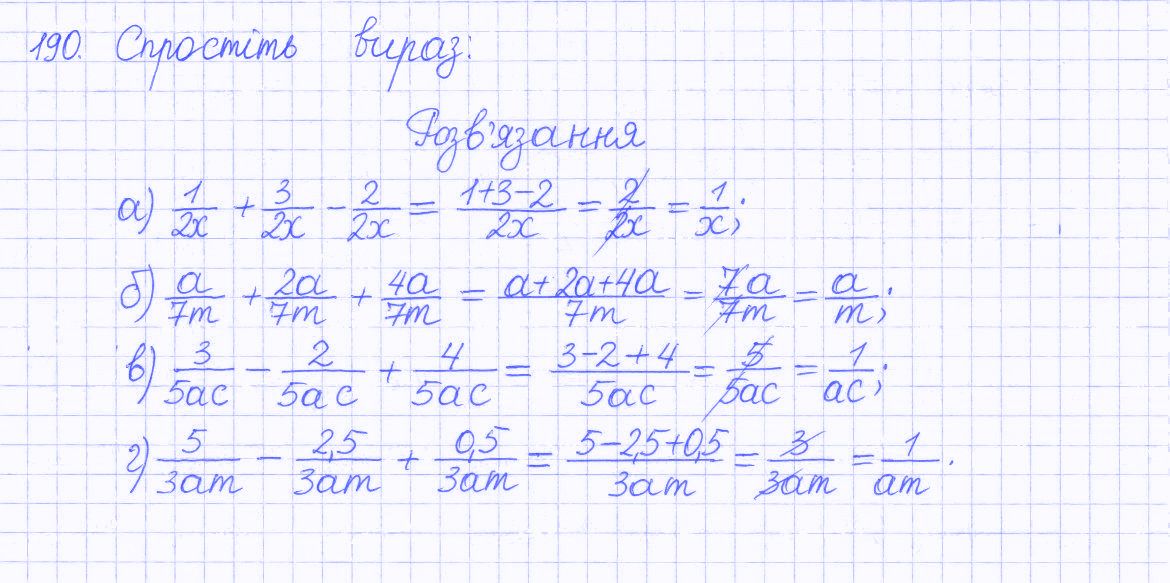 190. Спростіть вираз:
Розв'язання
а) 1/2x + 3/2x - 2/2x = (1+3-2)/2x = 2/2x = 1/x;
б) a/7m + 2a/7m + 4a/7m = (a+2a+4a)/7m = 7a/7m = a/m;
в) 3/5ac - 2/5ac + 4/5ac = (3-2+4)/5ac = 5/5ac = 1/ac;
г) 5/3am - 2,5/3am + 0,5/3am = (5-2,5+0,5)/3am = 3/3am = 1/am.